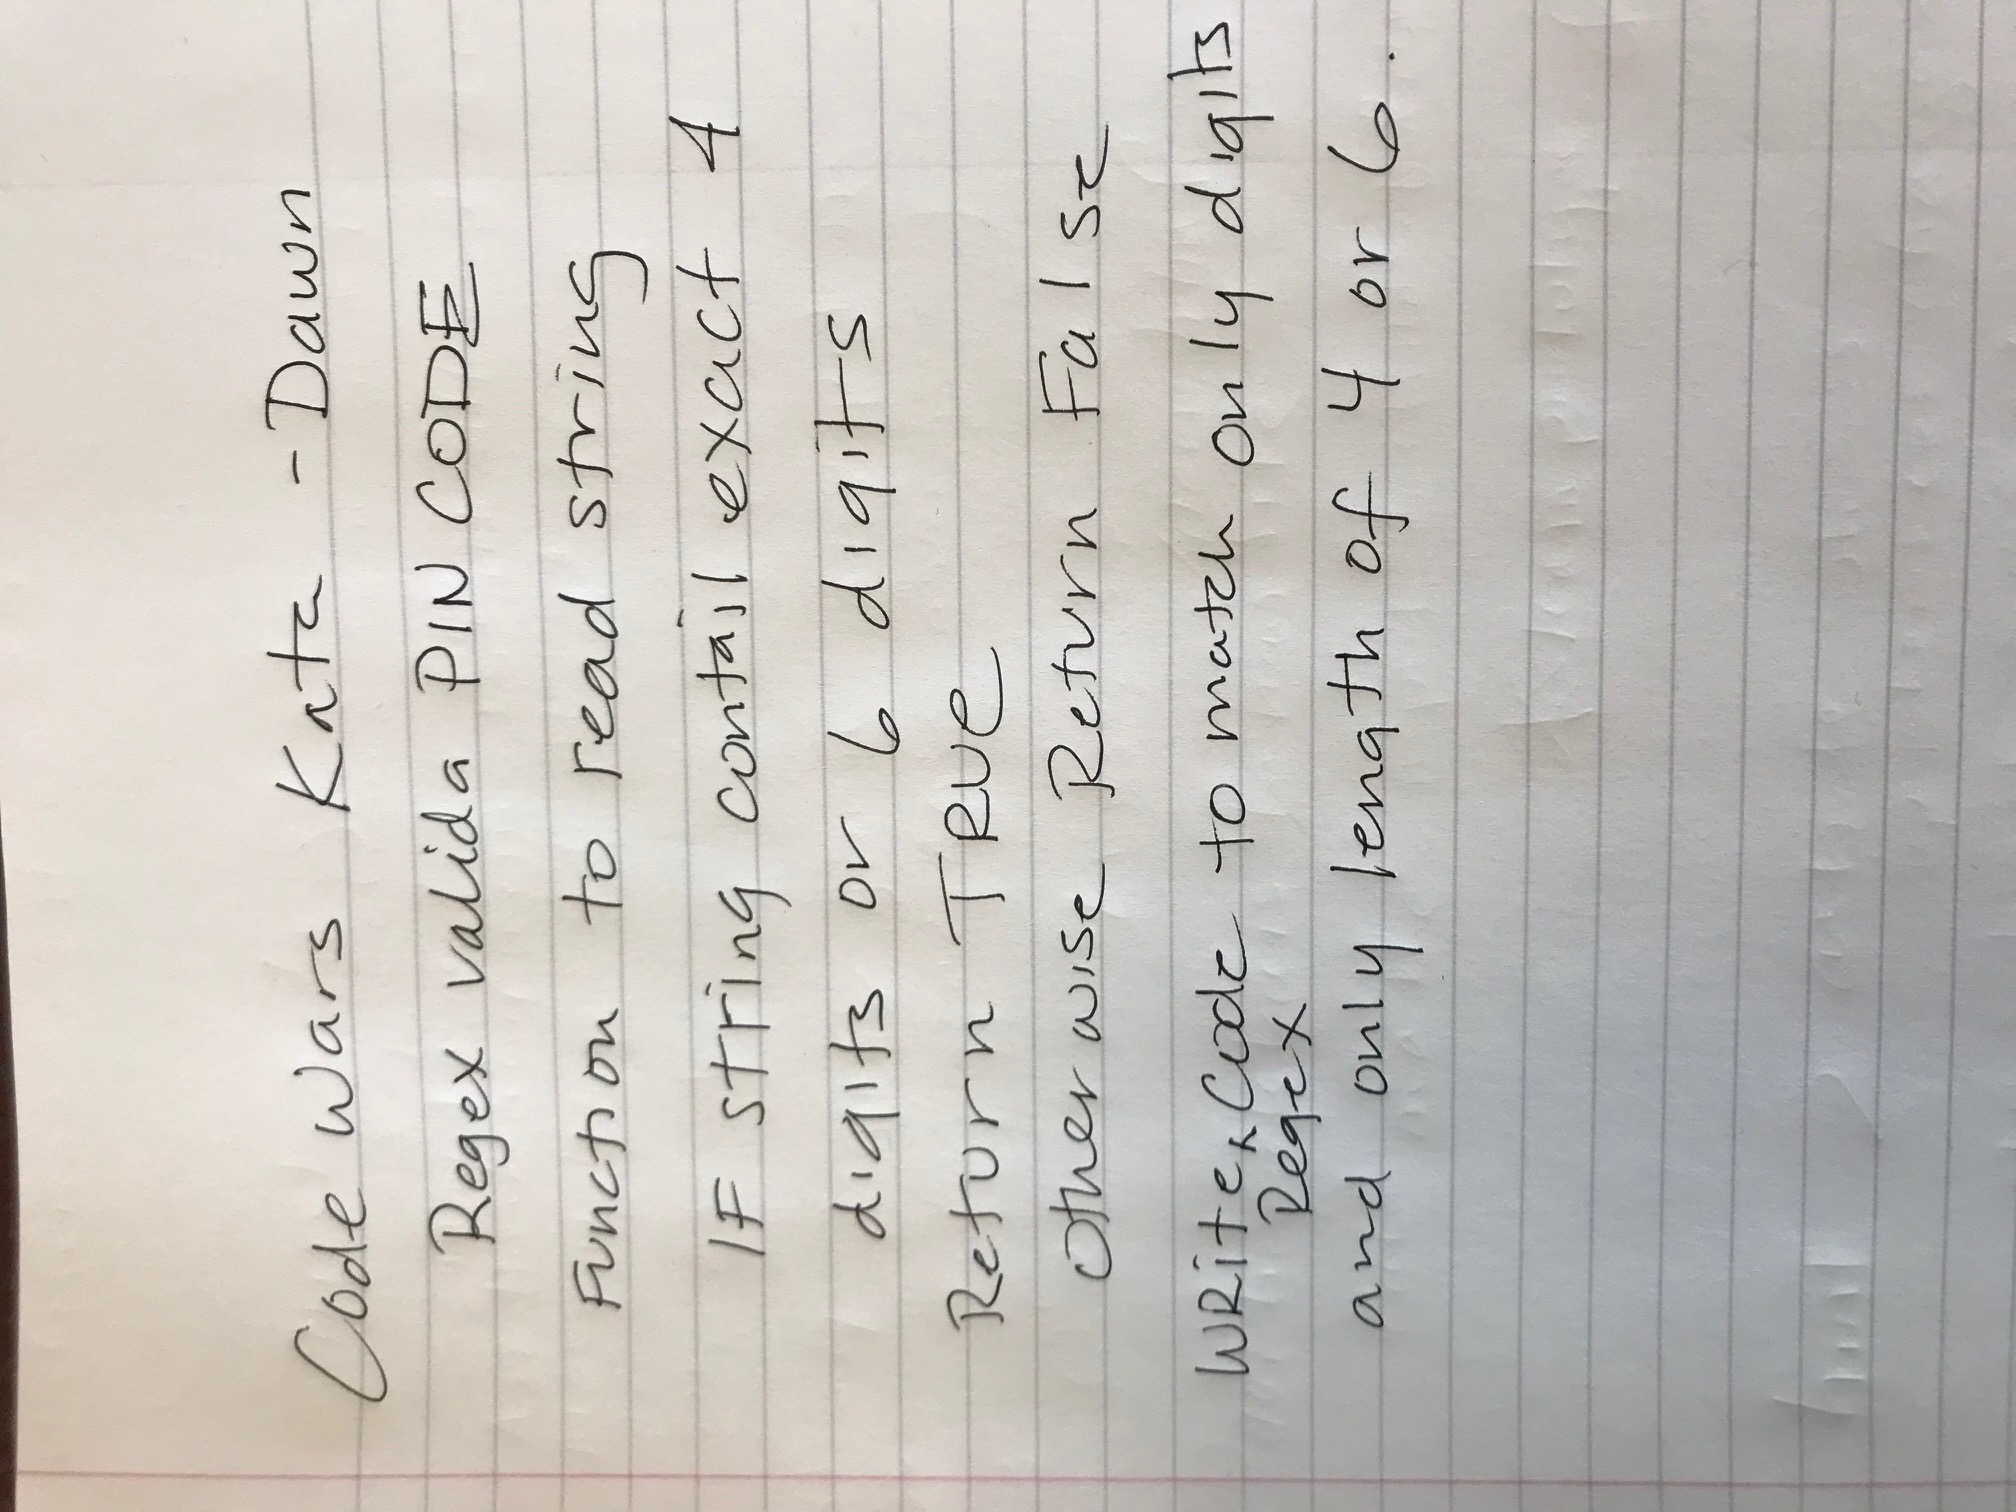 Code Wars Kata - Dawn
Regex valida PIN CODE
Function to read string
IF string contail exact 4
digits or 6 digits
Return TRUE
otherwise Return False
WRite ^ Code to match only digits
Regex
and only length of 4 or 6.